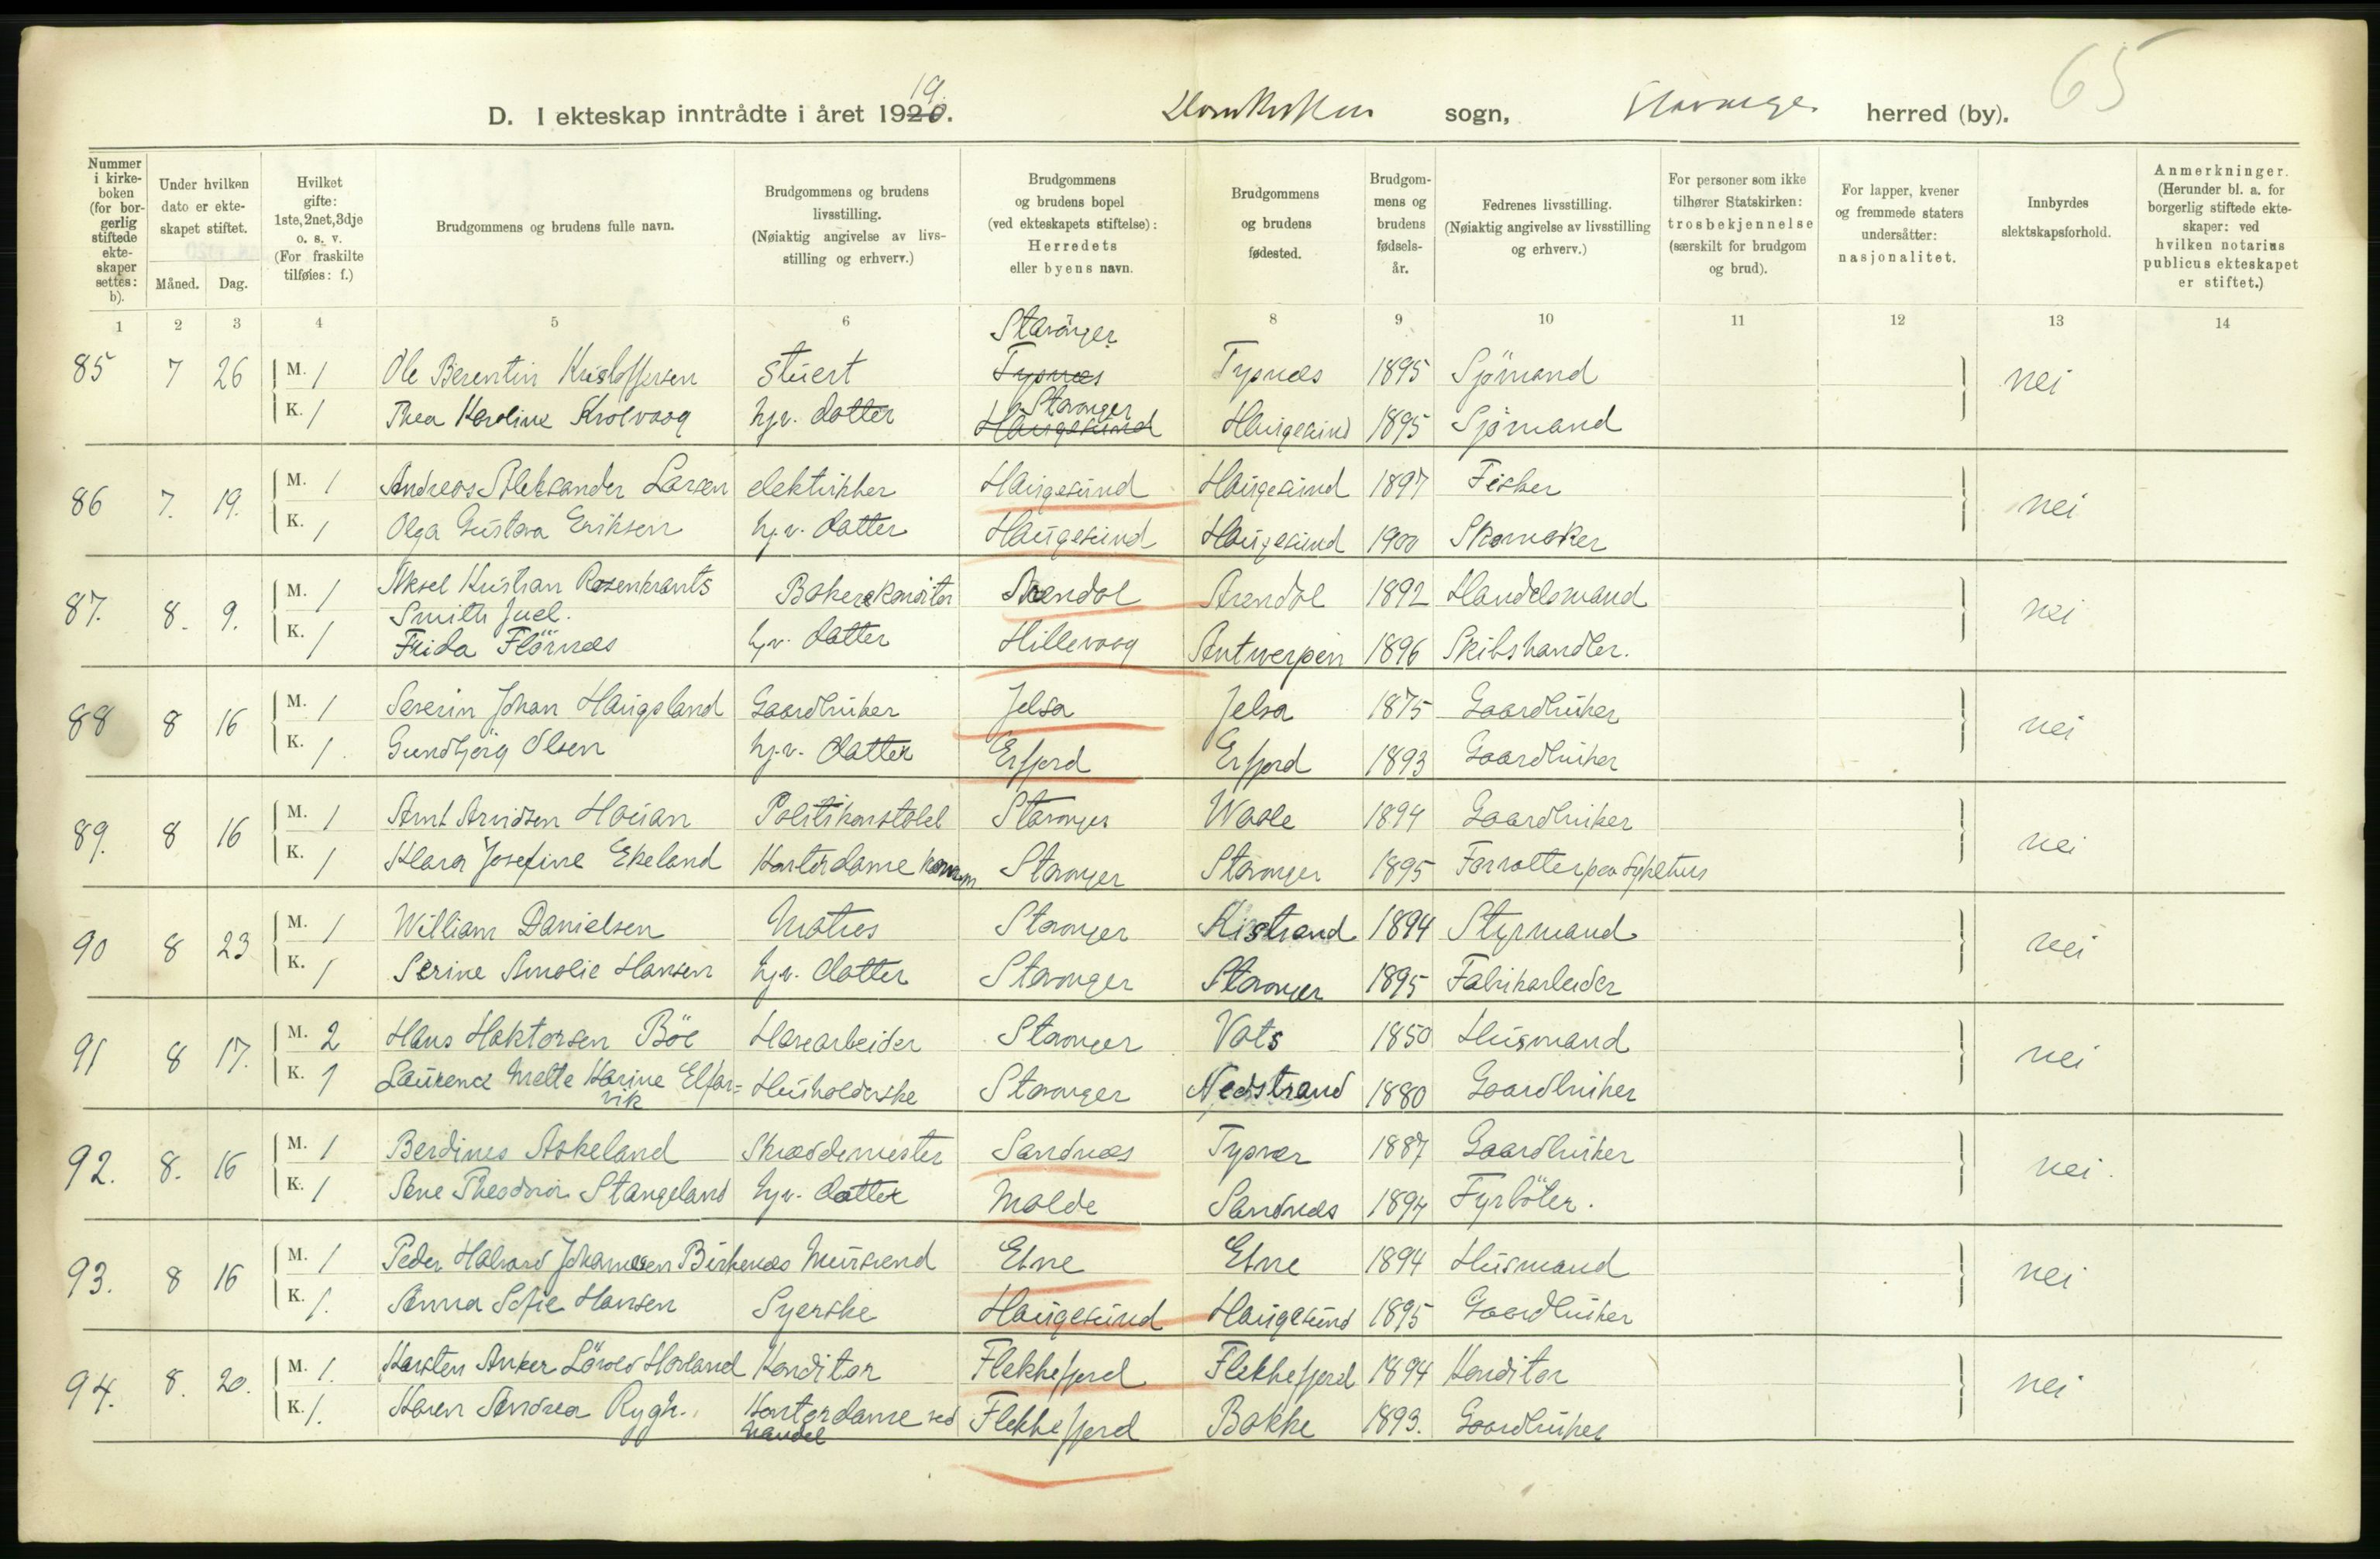 65
D. I ekteskap inntrådte i året 1920. 19. Domkirken sogn, Stavanger herred (by).
Nummer i kirkeboken (for borgerlig stiftede ekteskaper settes: b).
Under hvilken dato er ekteskapet stiftet.
Måned. Dag.
Hvilket gifte: 1ste, 2net, 3dje o. s. v. (For fraskilte tilføies: f.)
Brudgommens og brudens fulle navn.
Brudgommens og brudens livsstilling. (Nøiaktig angivelse av livsstilling og erhverv.)
Brudgommens og brudens bopel (ved ekteskapets stiftelse): Herredets eller byens navn.
Brudgommens og brudens fødested.
Brudgommens og brudens fødselsår.
Fedrenes livsstilling. (Nøiaktig angivelse av livsstilling og erhverv.)
For personer som ikke tilhører Statskirken: trosbekjennelse (særskilt for brudgom og brud).
For lapper, kvener og fremmede staters undersåtter: nasjonalitet.
Innbyrdes slektskapsforhold.
Anmerkninger. (Herunder bl. a. for borgerlig stiftede ekteskaper: ved hvilken notarius publicus ekteskapet er stiftet.)
1 2 3 4 5 6 8 9 10 11 12 13 14
Stavanger
85 7 26 M. 1 Ole Berentin Kristoffersen Stuert Tysnæs Tysnæs 1895 Sjömand nei
Stavanger
K. 1 Thea Karoline Krolvaag hj.v. datter Haugesund Haugesund 1895 Sjömand
86 7. 19. M. 1 Andreas Aleksander Larsen elektrikker Haugesund Haugesund 1897 Fisker nei
K. 1 Olga Gustava Eriksen hj.v. datter Haugesund Haugesund 1900 Skomaker
87. 8. 9. M. 1 Aksel Kristian Rosenkrants Smith Juel. Baker & Konditor Arendal Arendal 1892 Handelsmand nei
K. 1 Frida Flörnæs hj.v. datter Hillevaag Antwerpen 1896 Skibshandler.
88 8 16 M. 1 Severin Johan Haugsland Gaardbruker Jelsa Jelsa 1875 Gaardbruker nei
K. 1. Gundbjörg Olsen hj.v. datter Erfjord Erfjord 1893 Gaardbruker
89. 8 16 M. 1 Arnt Arvidsen Hauan Politikonstabel Stavanger Waale 1894 Gaardbruker nei
K. 1 Klara Josefine Ekeland Kontordame Stavanger Stavanger 1895 Forvalter paa Sykehus
90 8 23 M. 1 William Danielsen Matros Stavanger Kistrand 1894 Styrmand nei
K. 1 Serine Amalie Hansen hj.v. datter Stavanger Stavanger 1895 Fabrikarbeider
91 8 17. M. 2 Hans Haktorsen Böe Havearbeider Stavanger Vats 1850 Husmand nei
K. 1 Laurence Mette Karine Elfarvik Husholderske Stavanger Nedstrand 1880 Gaardbruker
92. 8. 16 M. 1 Berdines Askeland Skræddemester Sandnæs Tysvær 1887 Gaardbruker nei.
K. 1 Ane Theodora Stangeland hj.v. datter Molde Sandnæs 1894 Fyrböter.
93. 8 16 M. 1 Peder Halvard Johannesen Birkenæs Mursvend Etne Etne 1894 Husmand nei
K. 1. Anna Sofie Hansen Syerske Haugesund Haugesund 1895 Gaardbruker
94. 8. 20. M. 1. Karsten Anker Hovland Konditor Flekkefjord Flekkefjord 1894 Konditor nei
K. 1. Karen Andrea Rygh. Kontordame ved handel Flekkefjord Bakke 1893. Gaardbruker